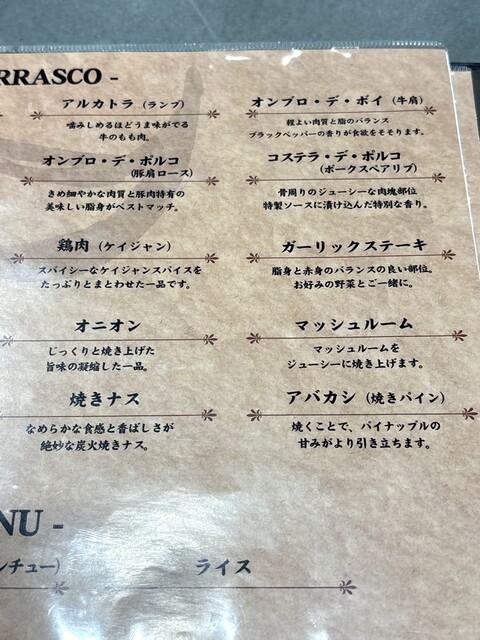 RRASCO -
アルカトラ (ランプ)
噛みしめるほどうま味がでる
牛のもも肉。
オンブロ・デ・ボイ (牛肩)
程よい肉質と脂のバランス
ブラックペッパーの香りが食欲をそそります。
オンブロ・デ・ポルコ
(豚肩ロース)
きめ細やかな肉質と豚肉特有の
美味しい脂身がベストマッチ。
コステラ・デ・ポルコ
(ポークスペアリブ)
骨周りのジューシーな肉塊部位
特製ソースに漬け込んだ特別な香り。
鶏肉 (ケイジャン)
スパイシーなケイジャンスパイスを
たっぷりとまとわせた一品です。
ガーリックステーキ
脂身と赤身のバランスの良い部位。
お好みの野菜とご一緒に。
オニオン
じっくりと焼き上げた
旨味の凝縮した一品。
マッシュルーム
マッシュルームを
ジューシーに焼き上げます。
焼きナス
なめらかな食感と香ばしさが
絶妙な炭火焼きナス。
アバカシ (焼きパイン)
焼くことで、パイナップルの
甘みがより引き立ちます。
NU -
ンチュー)
ライス